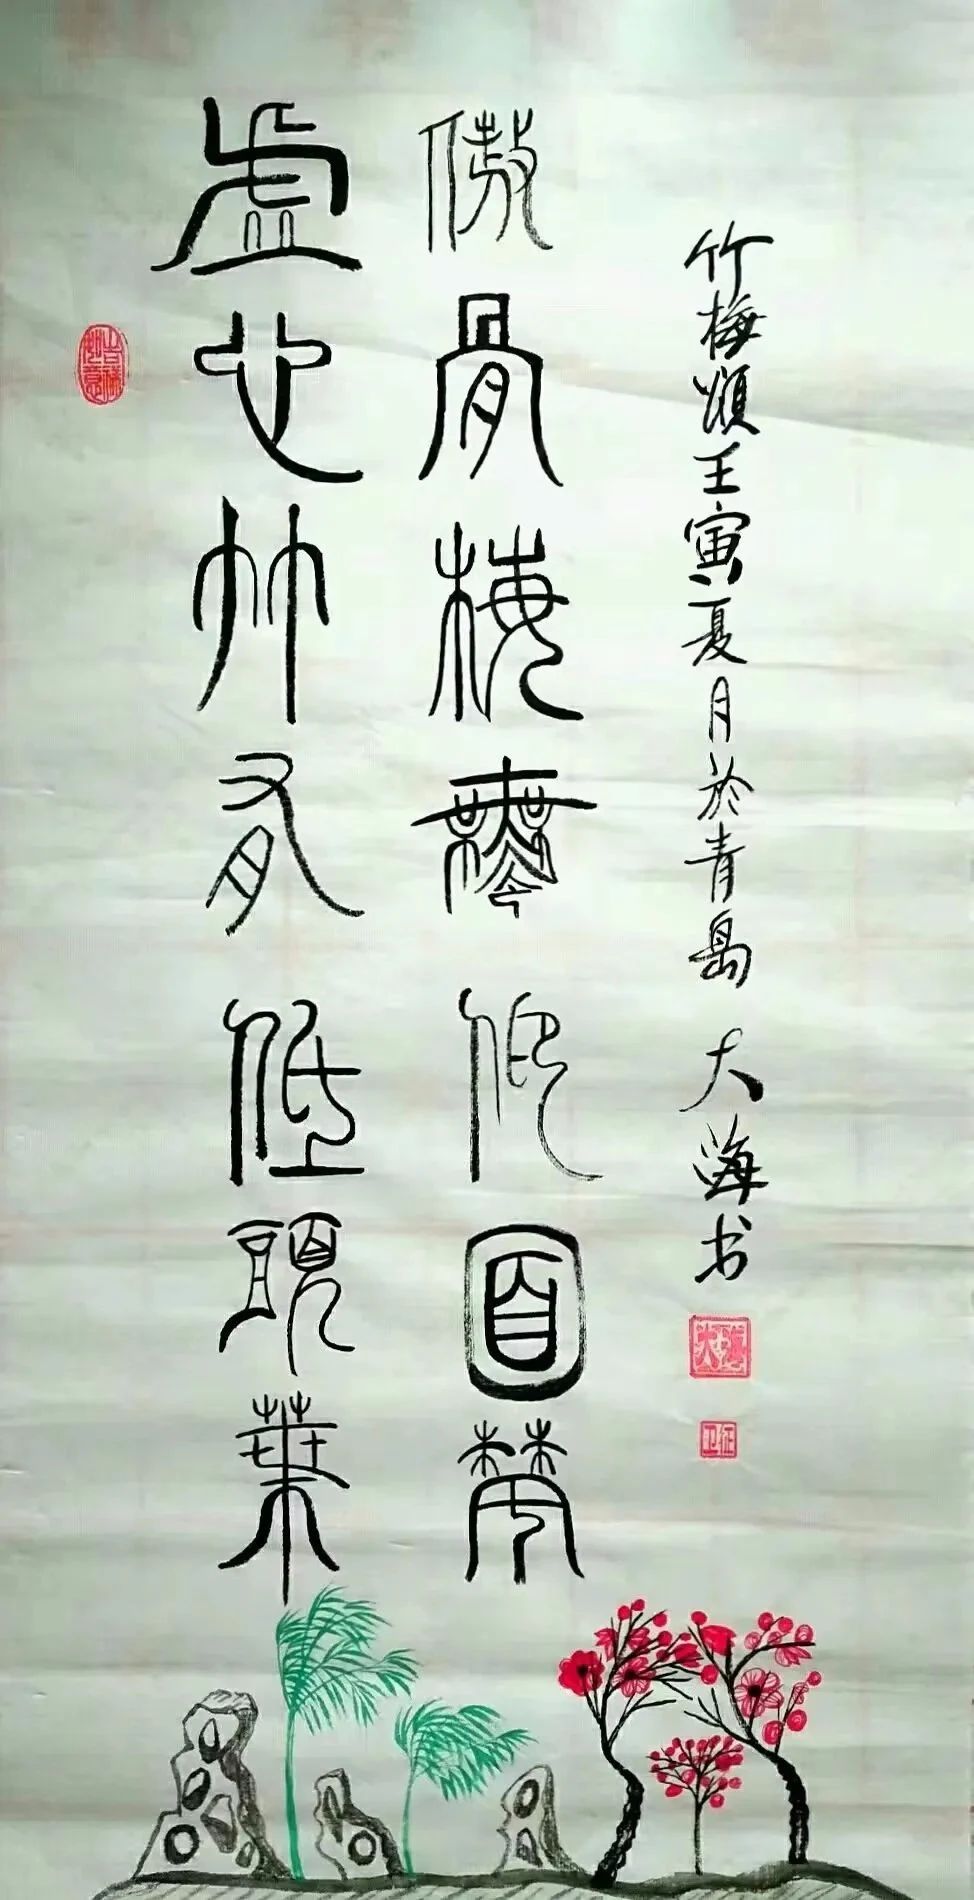 虛心竹有低頭葉
傲骨梅無仰面花
竹梅頌壬寅夏月於青島 大海书
吉祥如意